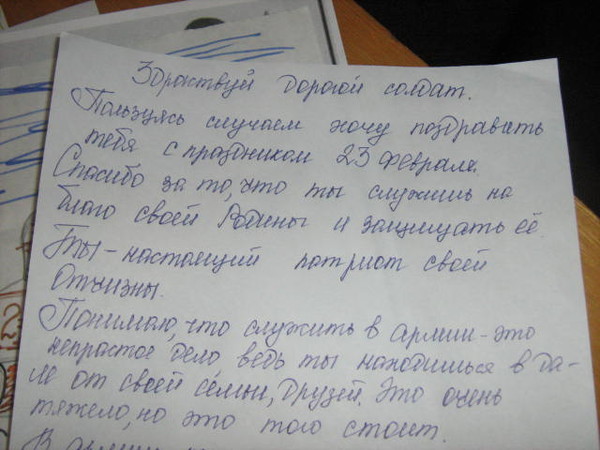 Здравствуй дорогой солдат.
Пользуясь случаем хочу поздравить
тебя с праздником 23 февраля.
Спасибо за то, что ты служишь на
благо своей Родины и защищать её.
Ты - настоящий патриот своей
Отчизны.
Понимаю, что служить в армии - это
непростое дело ведь ты находишься в да-
ле от своей семьи, друзей. Это очень
тяжело, но это того стоит.
В армии